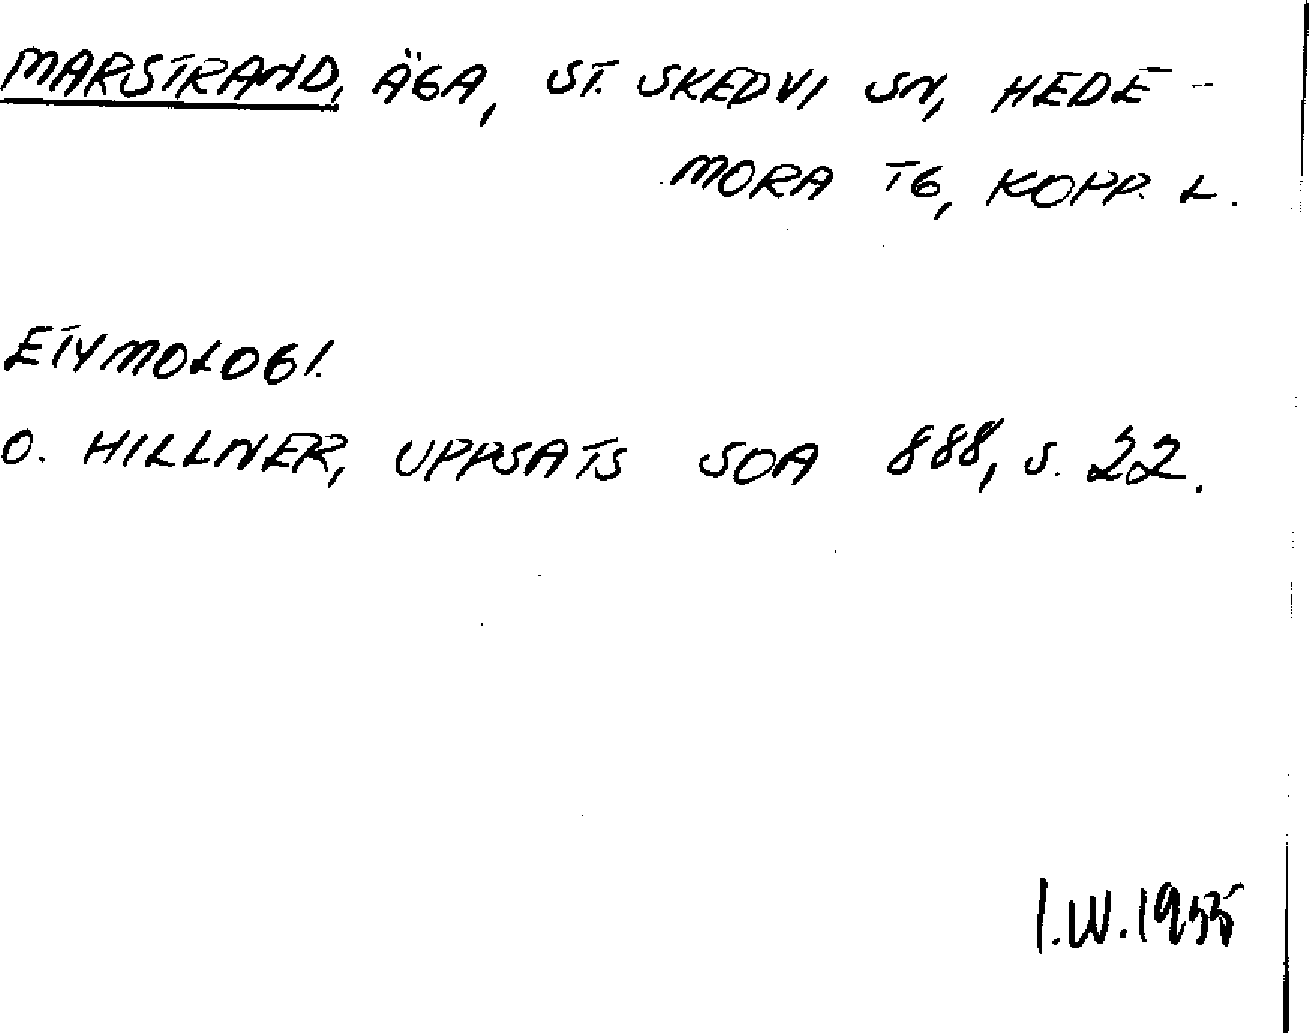 MARSTRAND, ÄGA, ST. SKEDVI SN, HEDE-
MORA TG, KOPP. L.
ETYMOLOGI.
O. HILLNER, UPPSATS SOA 888, S. 22.
I.W. 1955